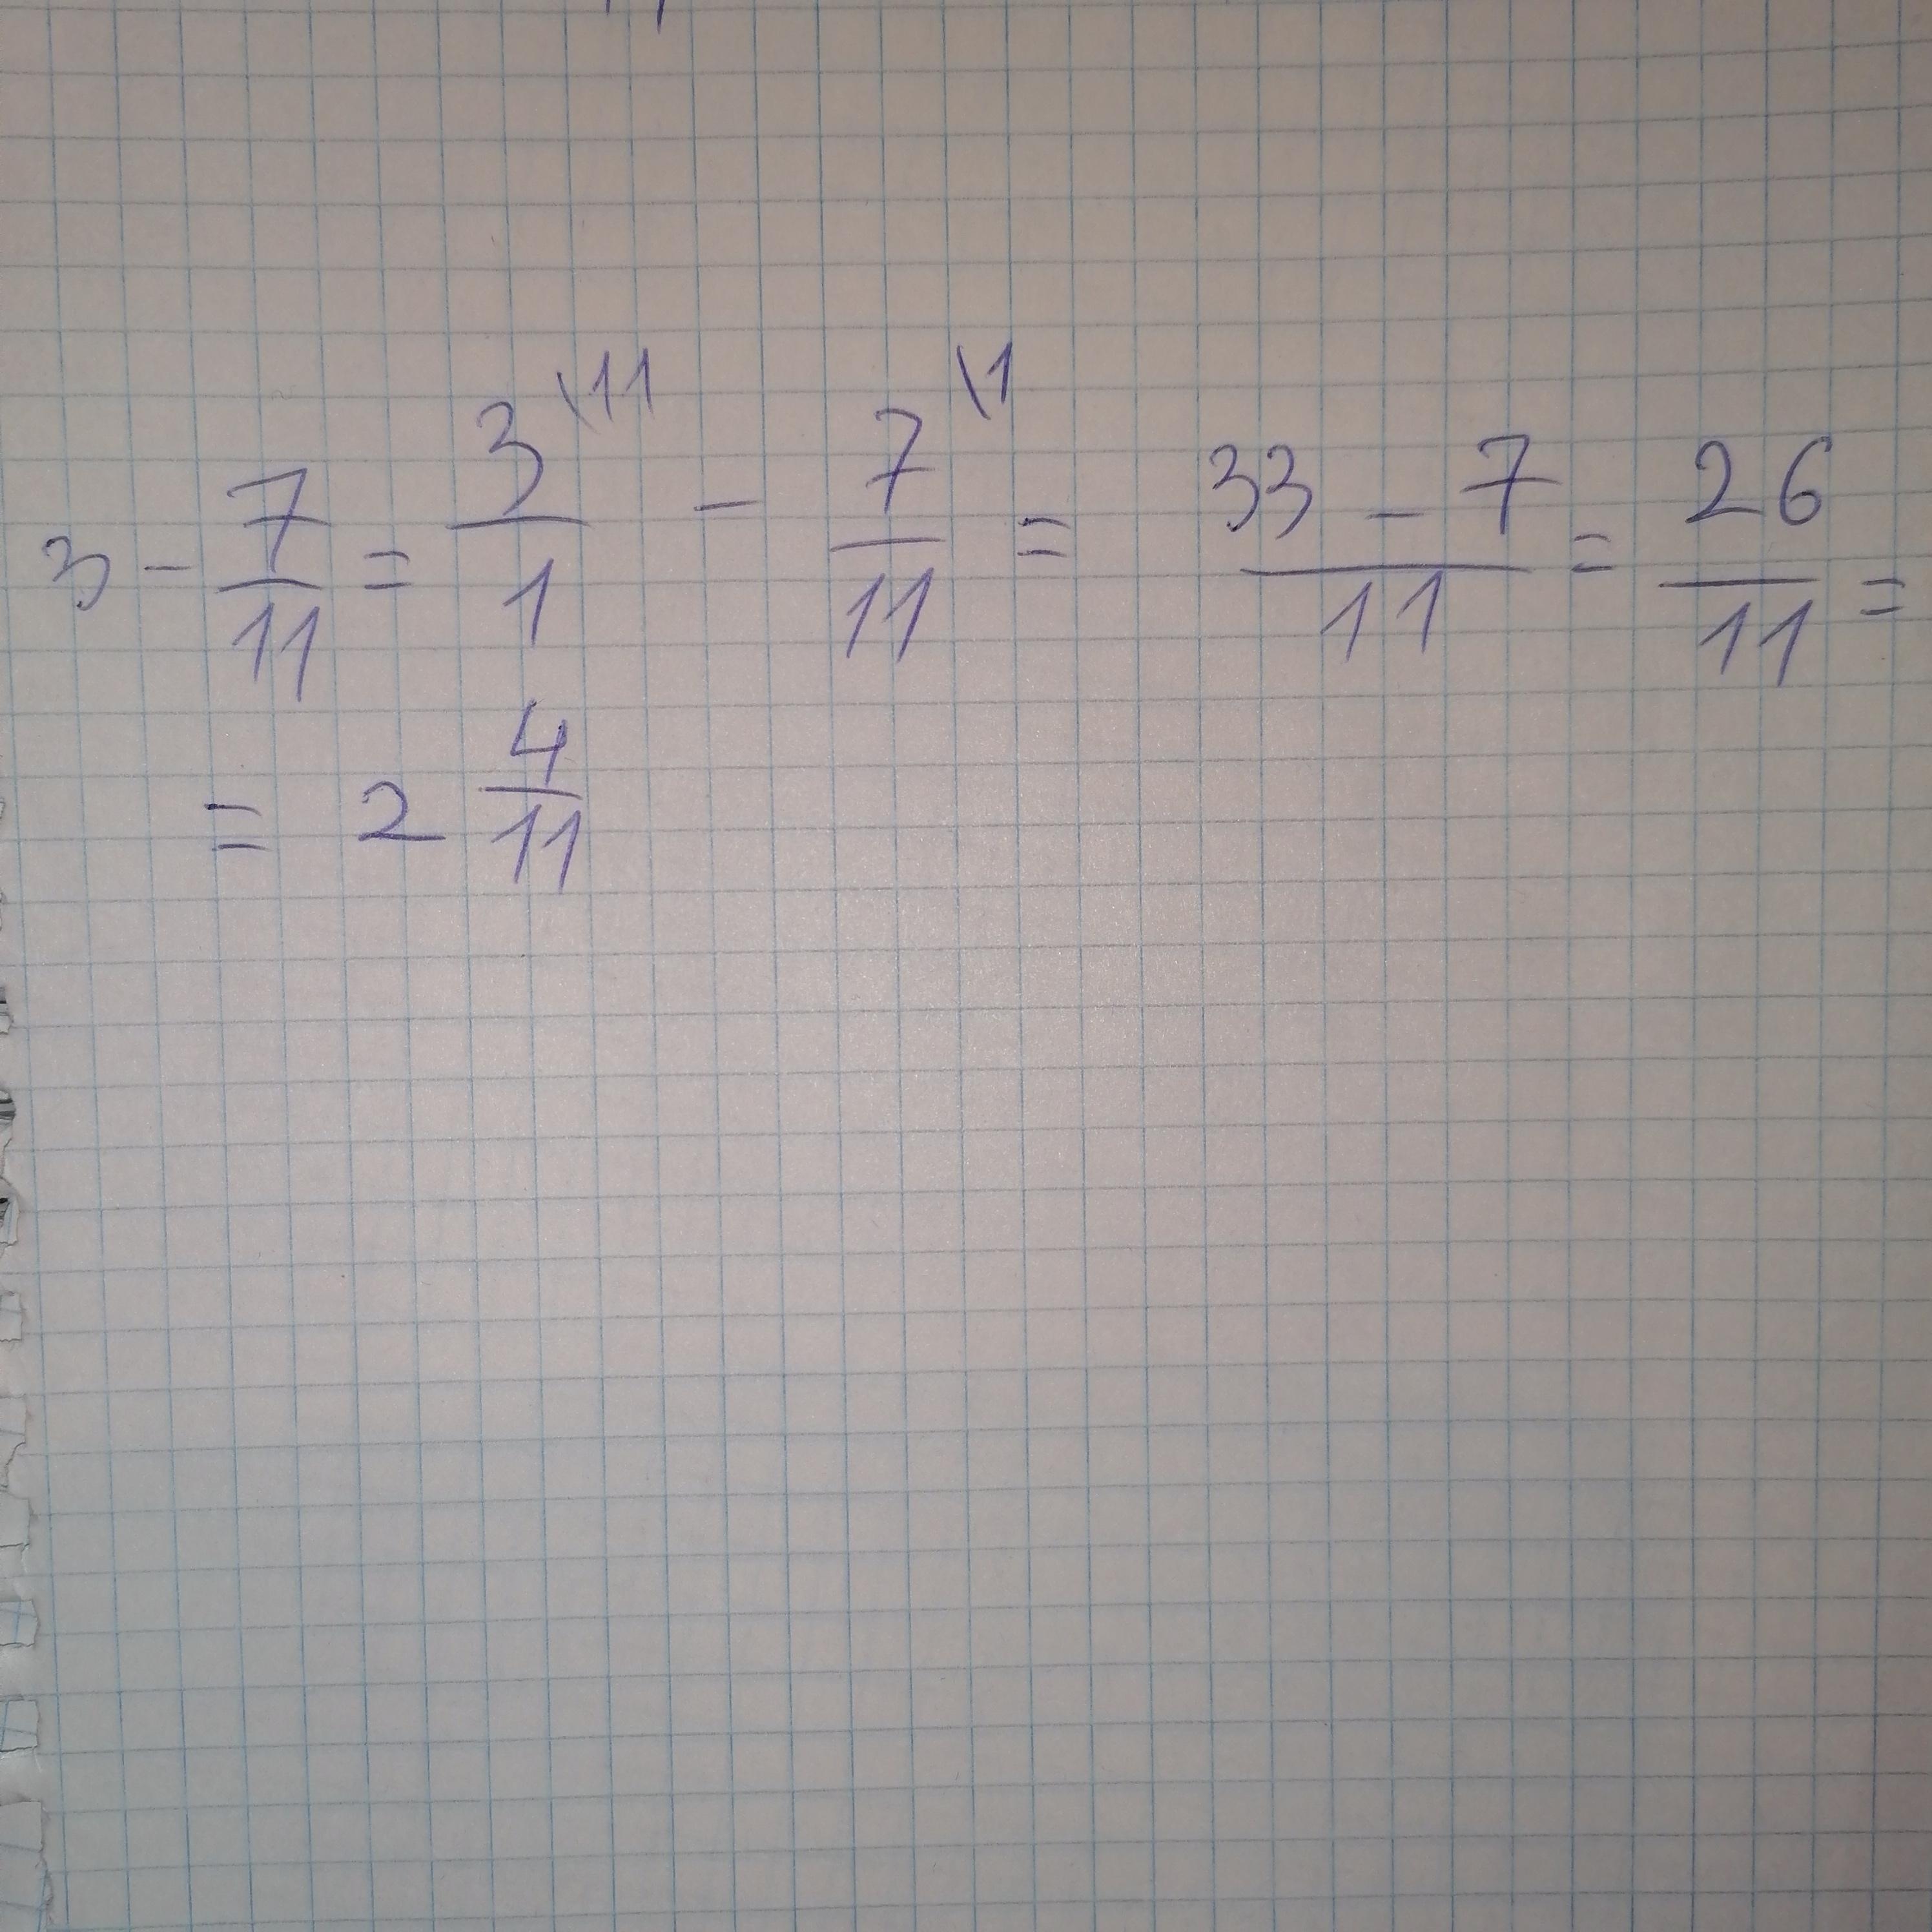 3 - 7/11 = 3\11/1 - 7\1/11 = 33 - 7/11 = 26/11 =
= 2 4/11